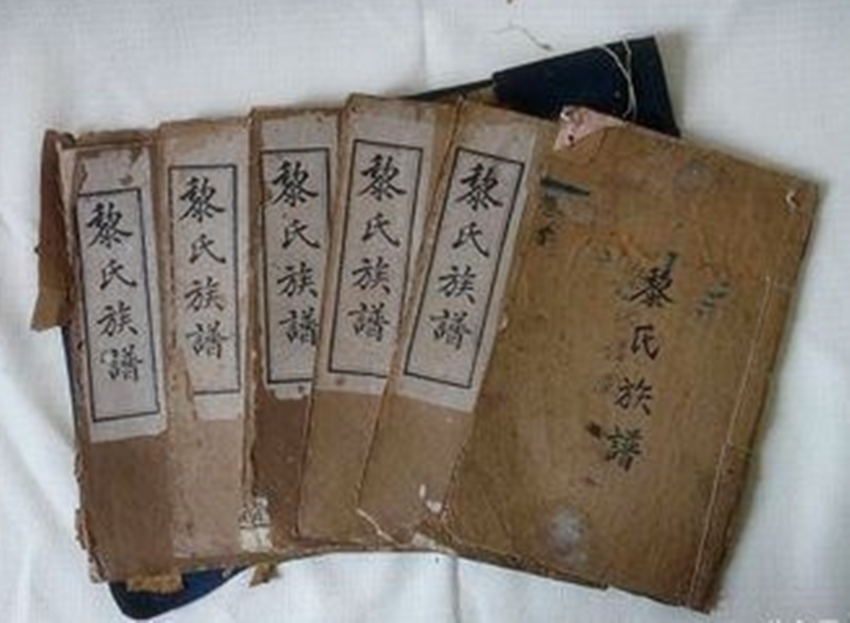 黎氏族譜
黎氏族譜
黎氏族譜
黎氏族譜
黎氏族譜
黎氏族譜